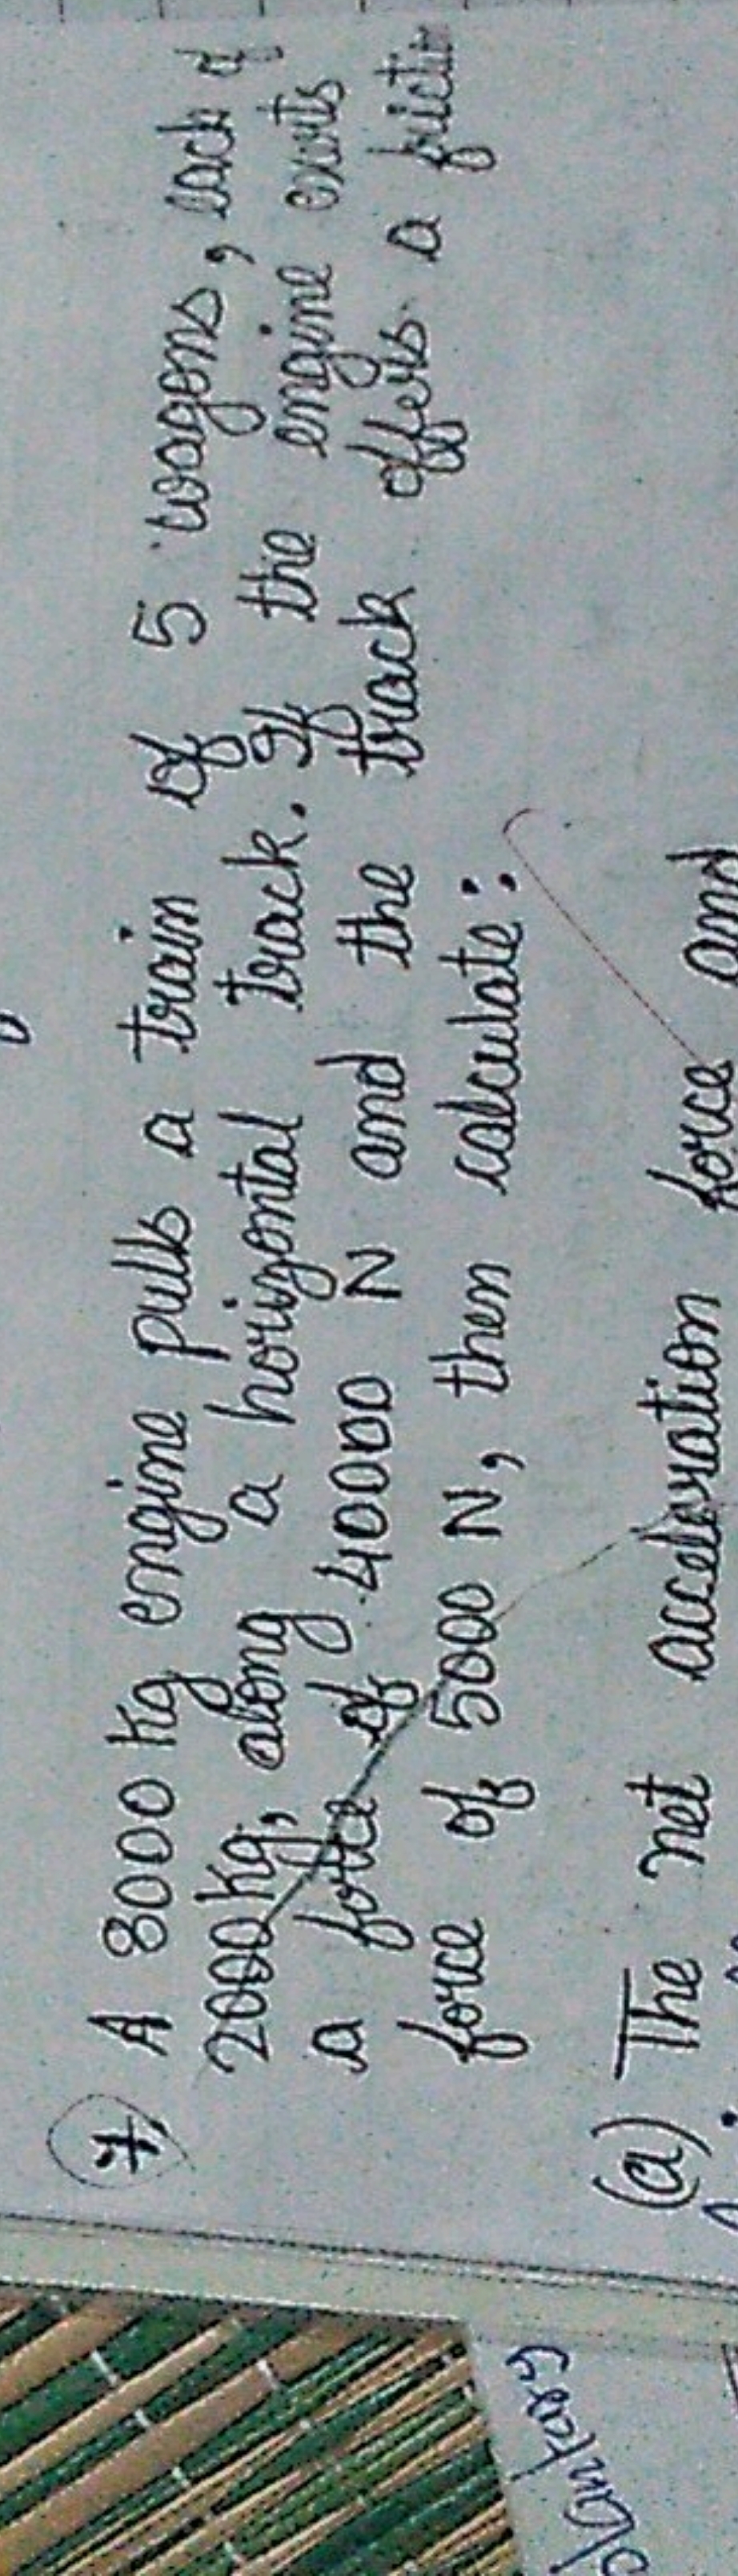 7, A 8000 kg engine pulls a train of 5 wagons, each of
2000kg, along a horizontal track. If the engine exerts
a force of 40000 N and the track offers a
force of 5000 N, then calculate:
(a) The net acceleration force and